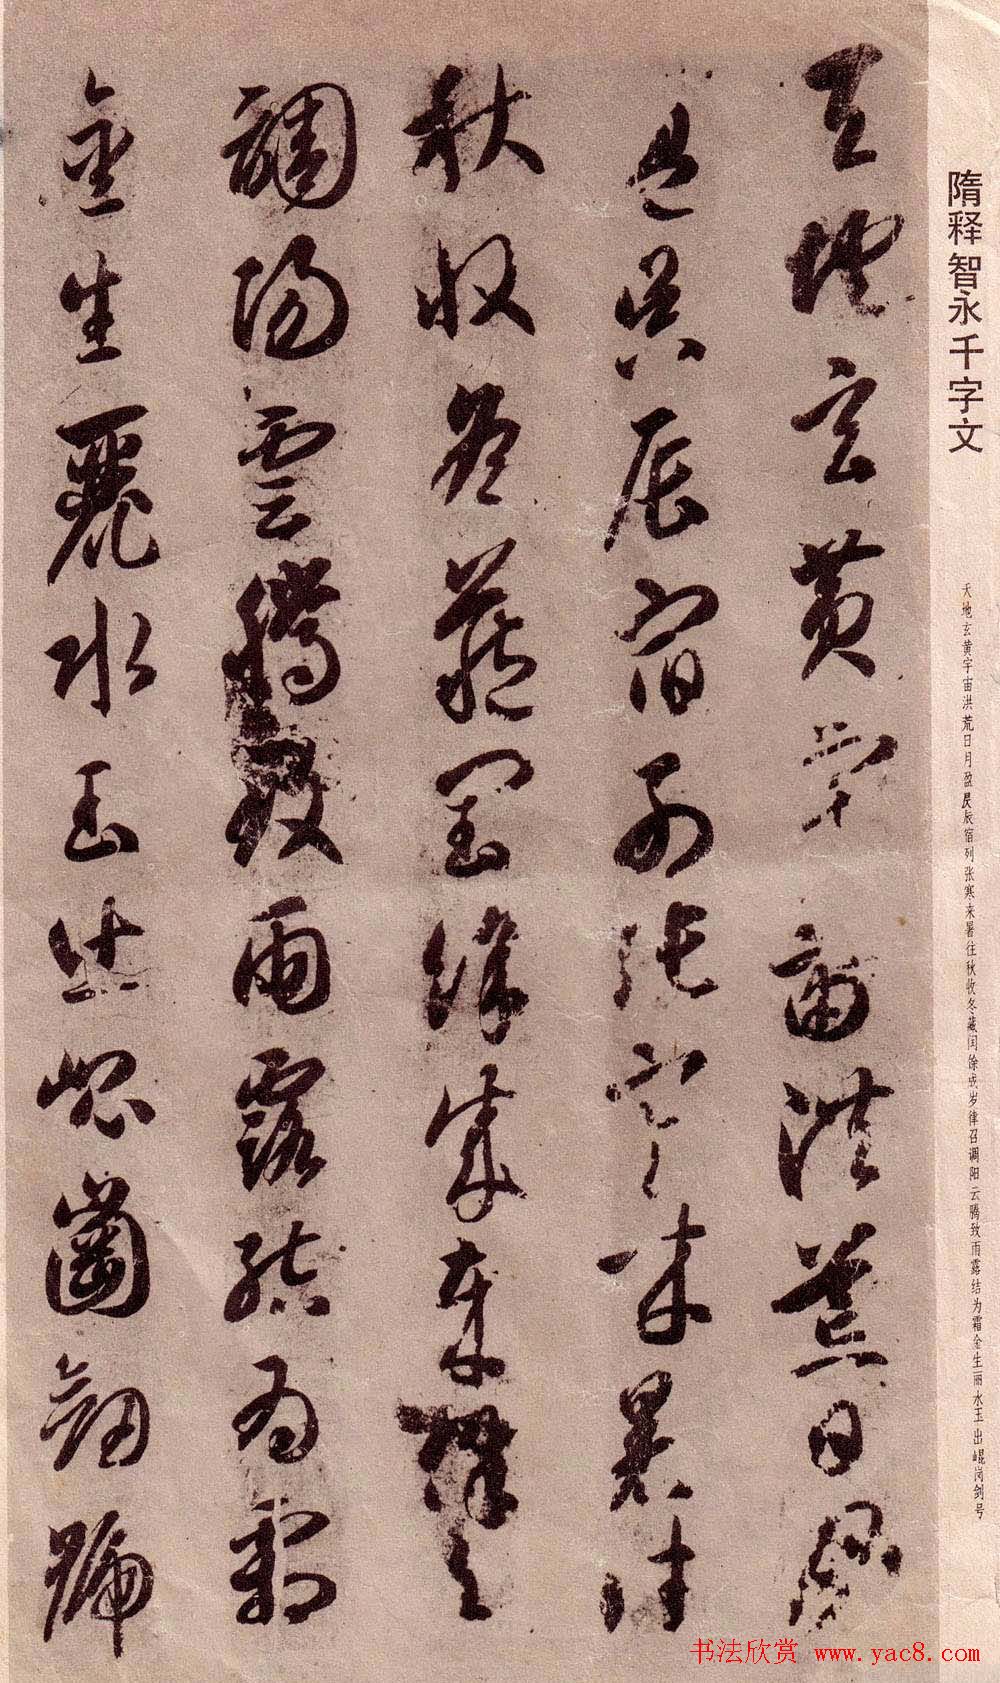 隋释智永千字文
天地玄黄宇宙洪荒日月盈昃辰宿列张寒来暑往秋收冬藏闰馀成岁律召调阳云腾致雨露结为霜金生丽水玉出崐岗剑号
天地玄黄宇宙洪荒日月
盈昃辰宿列張寒来暑往
秋收冬藏閏餘成歲律召
調陽雲騰致雨露結為霜
金生麗水玉出崐崗劒號
书法欣赏 www.yac8.com